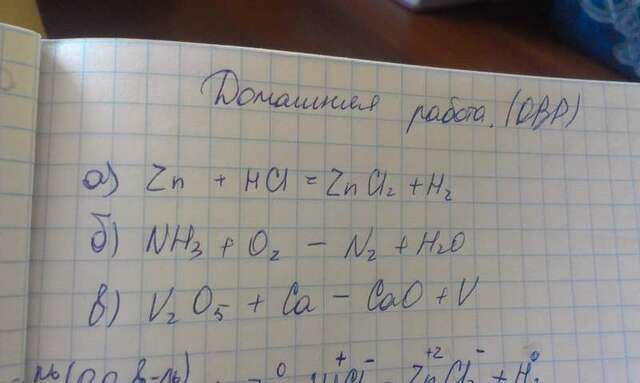 Домашняя работа. (ОВР)
а) Zn + HCl = ZnCl₂ + H₂
б) NH₃ + O₂ – N₂ + H₂O
в) V₂O₅ + Ca – CaO + V